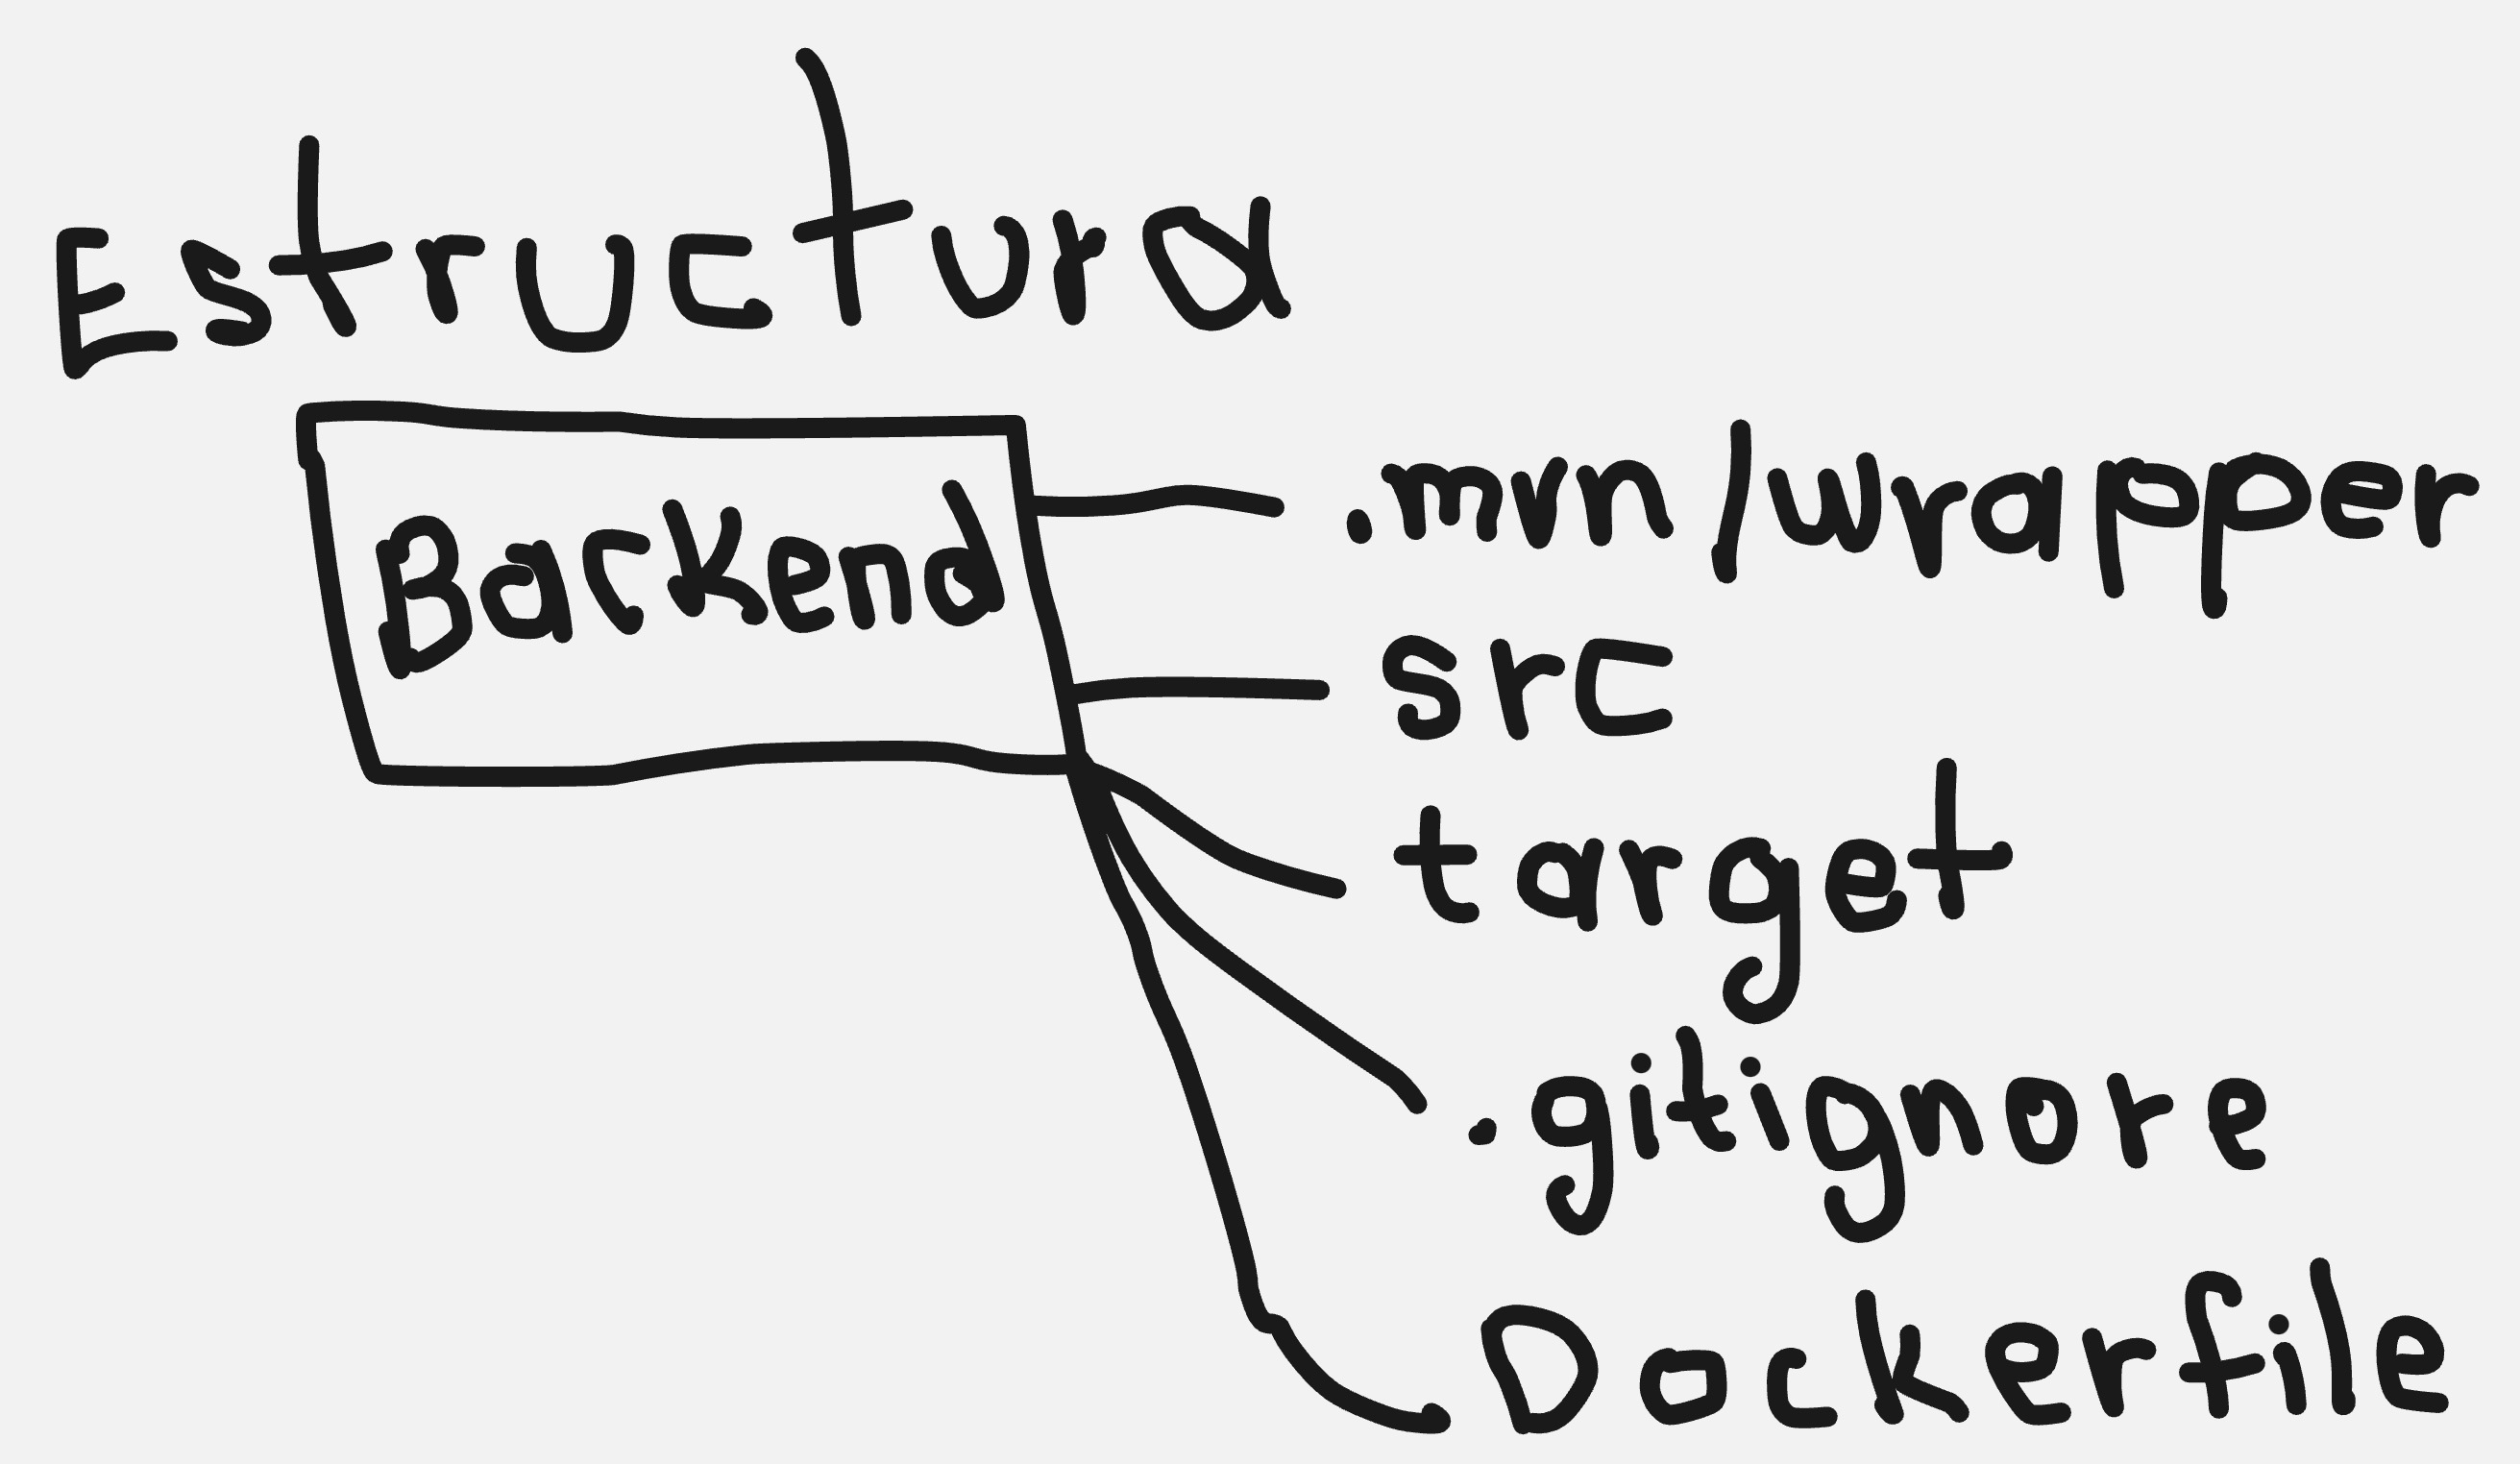 Estructura
Backend
.mvn/wrapper
src
target
.gitignore
Dockerfile